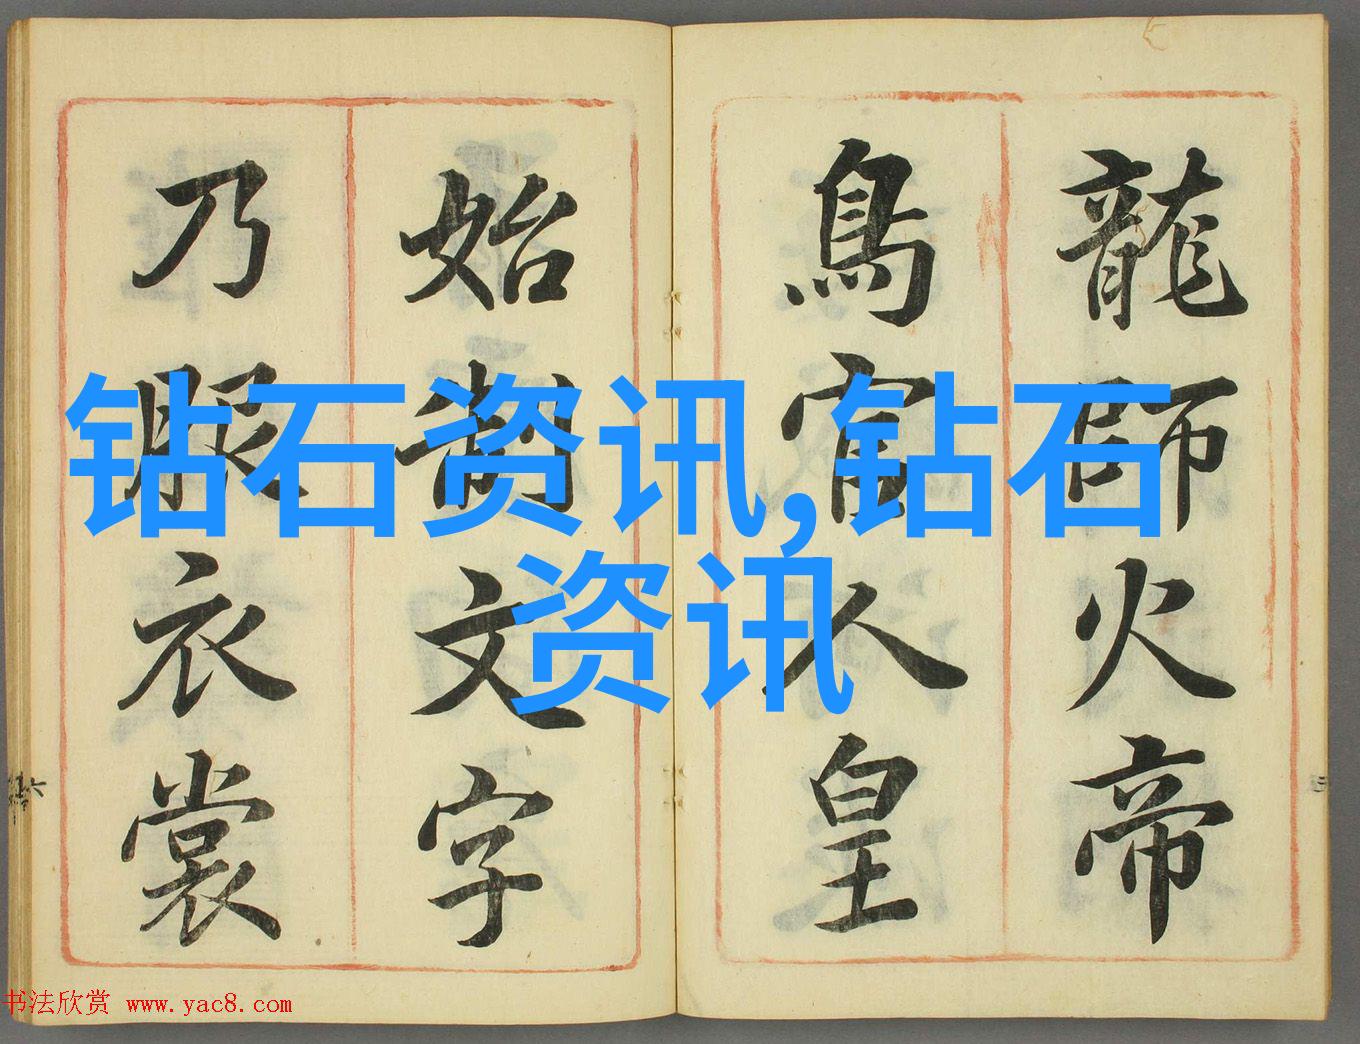 龍師火帝
鳥官人皇
始制文字
乃服衣裳
钻石资讯,钻石
资讯
书法欣赏 www.yac8.com